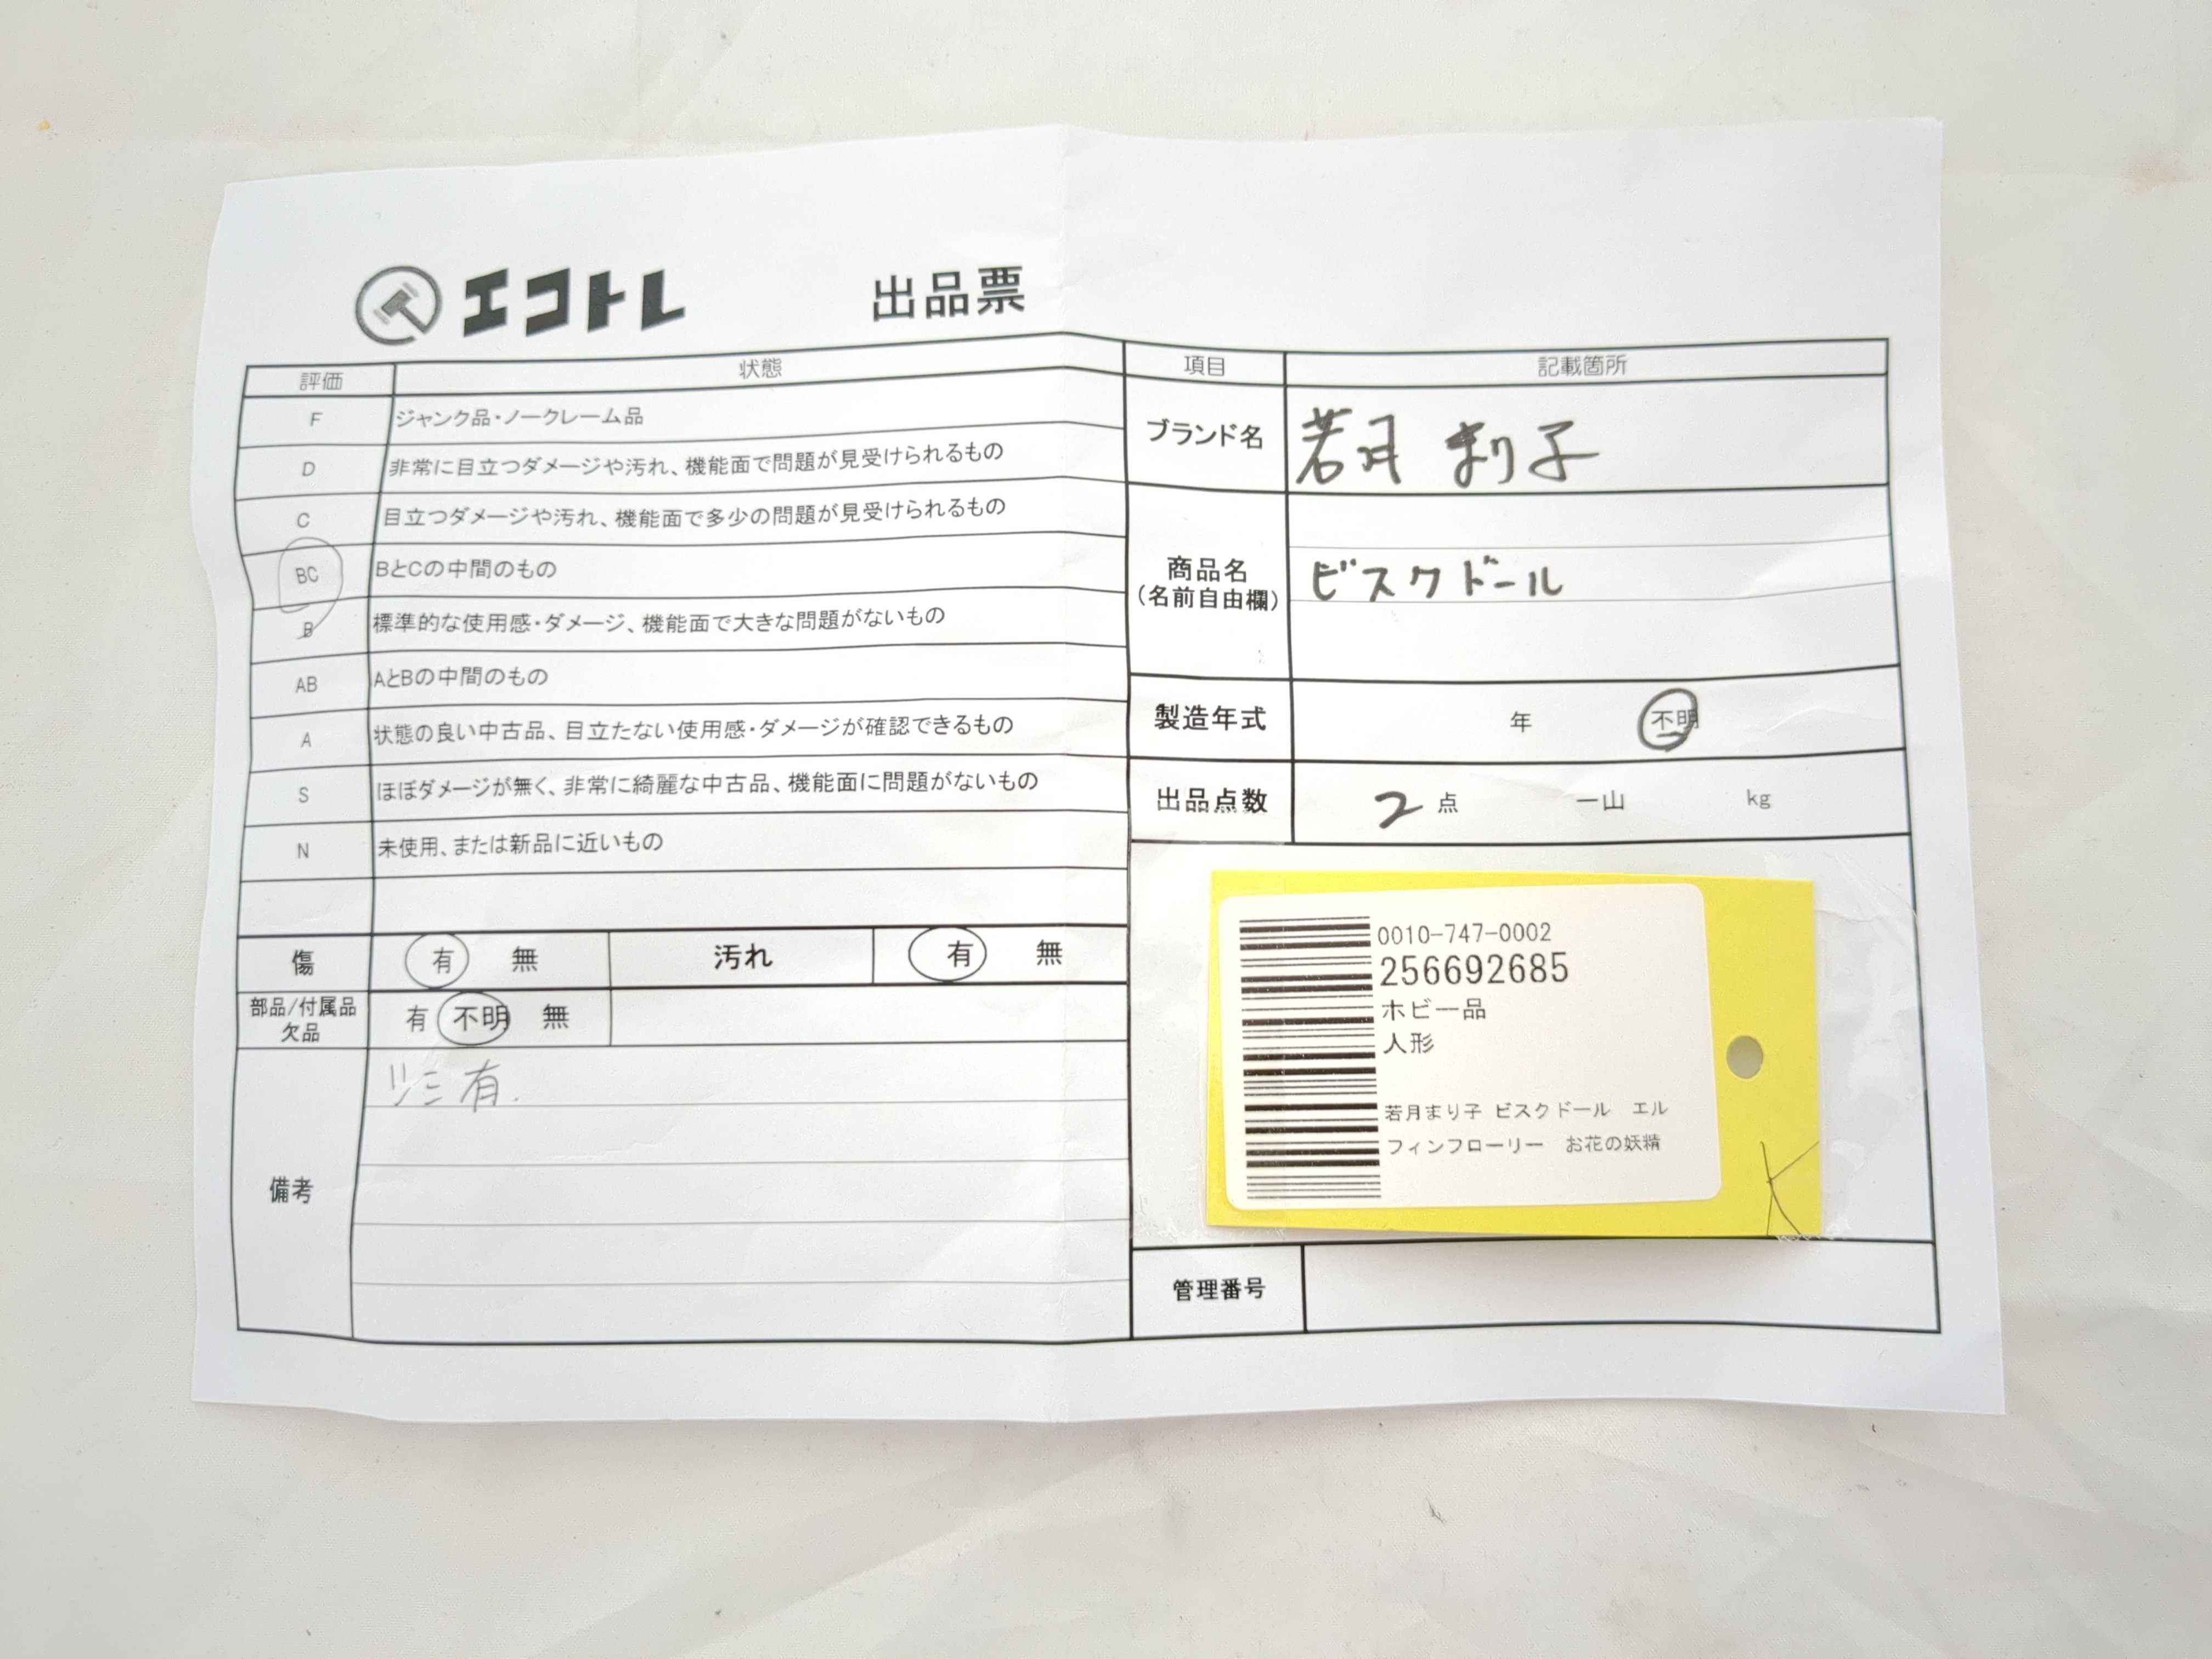 エコトレ 出品票
評価 状態
F ジャンク品・ノークレーム品
D 非常に目立つダメージや汚れ、機能面で問題が見受けられるもの
C 目立つダメージや汚れ、機能面で多少の問題が見受けられるもの
BC BとCの中間のもの
B 標準的な使用感・ダメージ、機能面で大きな問題がないもの
AB AとBの中間のもの
A 状態の良い中古品、目立たない使用感・ダメージが確認できるもの
S ほぼダメージが無く、非常に綺麗な中古品、機能面に問題がないもの
N 未使用、または新品に近いもの
傷 有 無 汚れ 有 無
部品/付属品
欠品 有 不明 無
備考 シミ有.
項目 記載箇所
ブランド名 若月 まり子
商品名
(名前自由欄) ビスクドール
製造年式 年 不明
出品点数 2 点 一山 kg
0010-747-0002
256692685
ホビー品
人形
若月まり子 ビスクドール エル
フィンフローリー お花の妖精
K
管理番号